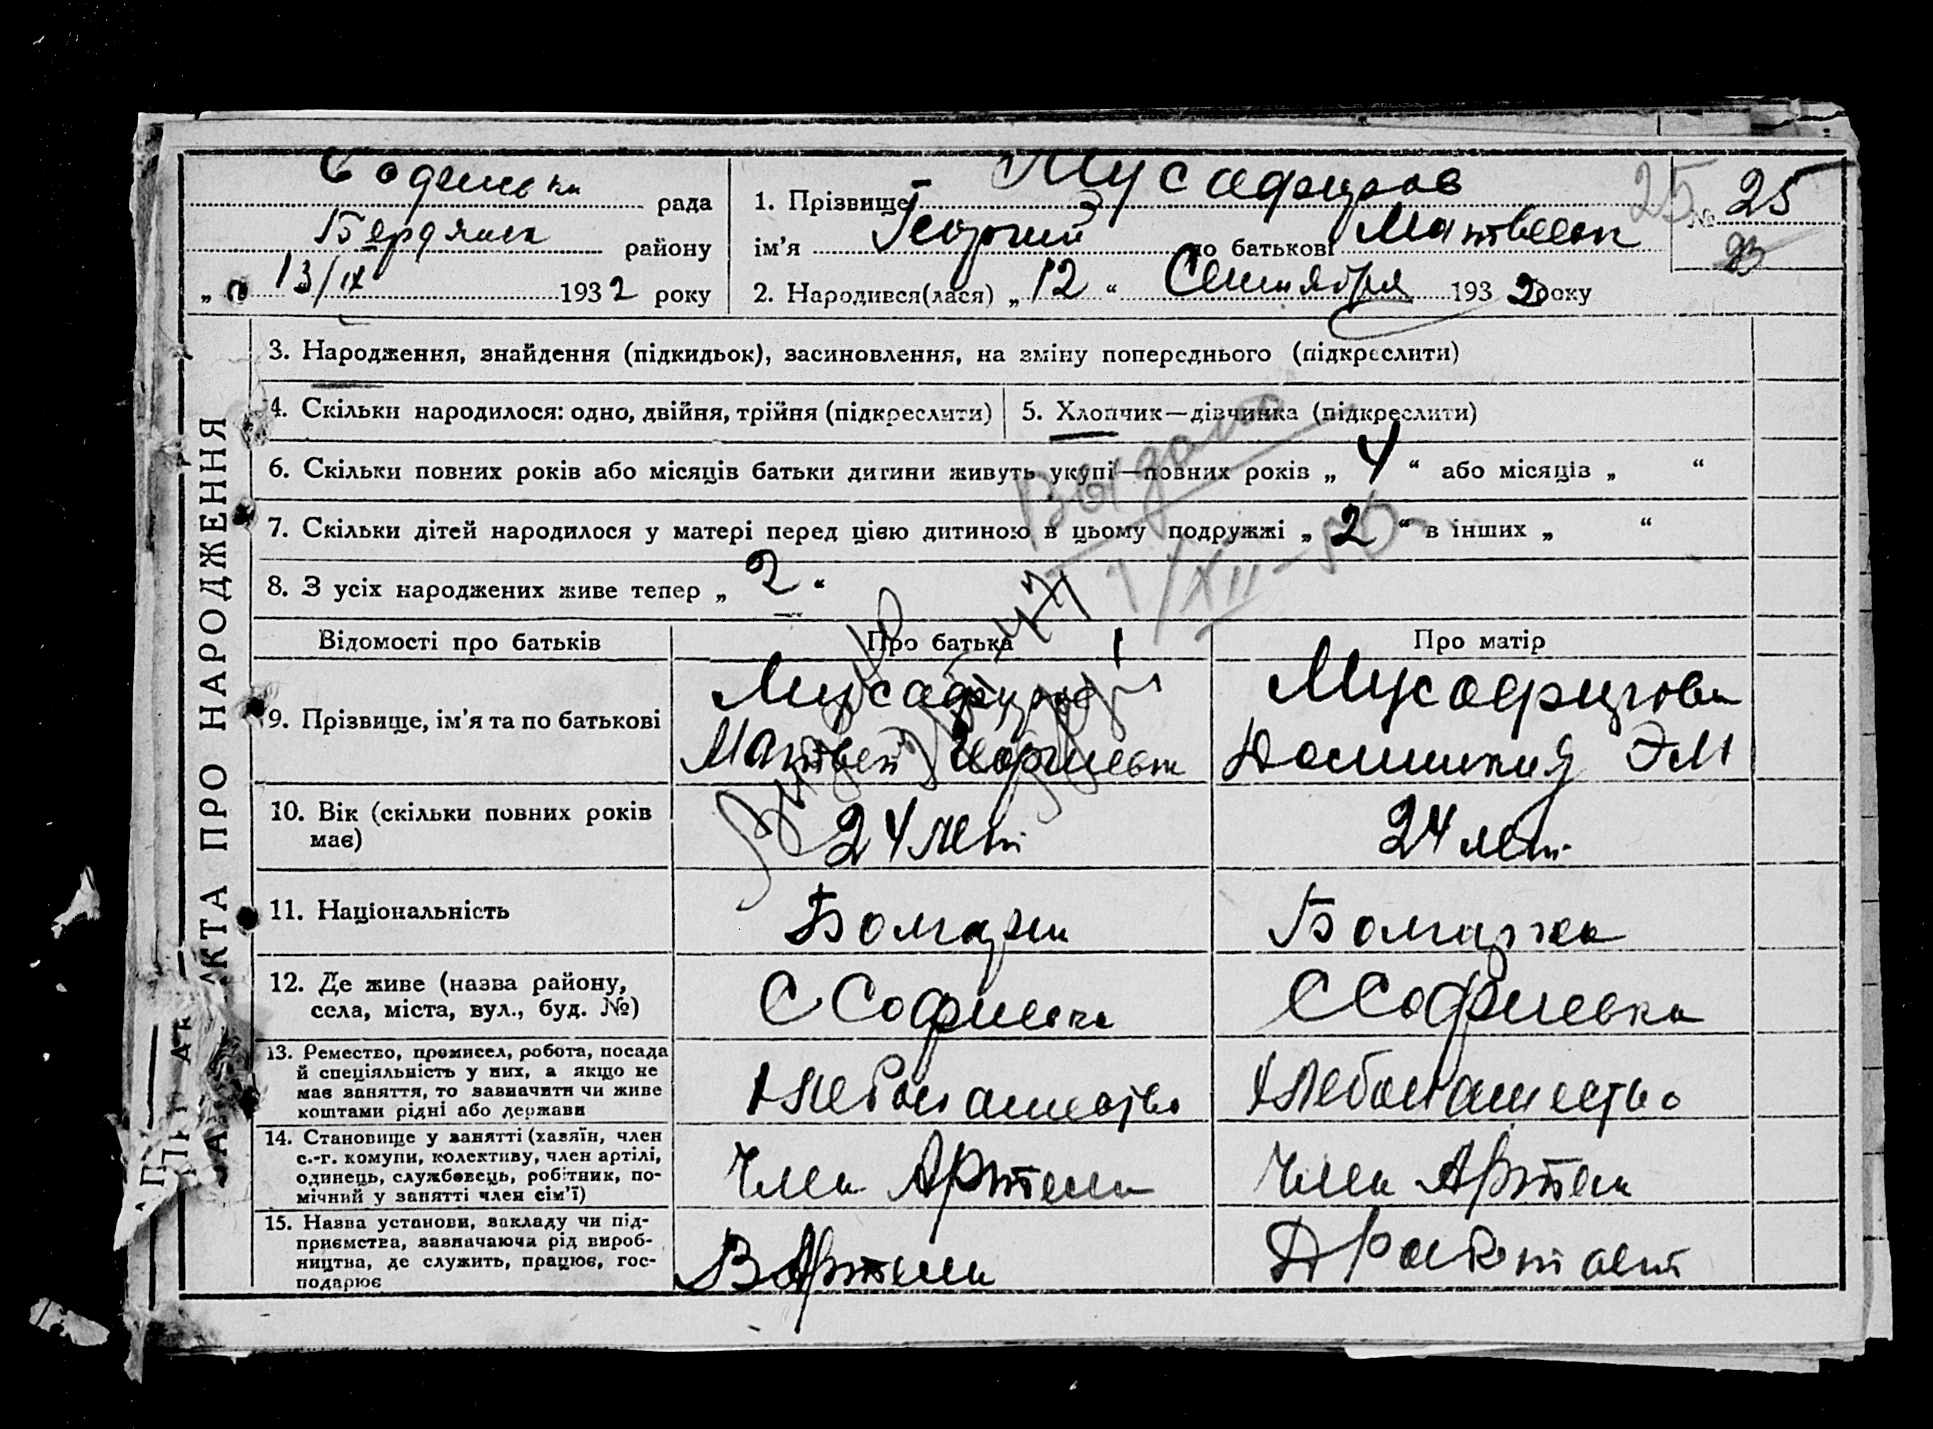 рада
1. Прізвище Мусафиров
25
№ 25
Бердянск району
ім’я Георгий по батькові Матвеевич
„ 13/IX 1932 року
2. Народився(лася) „ 12 “ Сентября 1932 року
АКТА ПРО НАРОДЖЕННЯ
3. Народження, знайдення (підкидьок), засиновлення, на зміну попереднього (підкреслити)
4. Скільки народилося: одно, двійня, трійня (підкреслити)
5. Хлопчик—дівчинка (підкреслити)
6. Скільки повних років або місяців батьки дитини живуть укупі—повних років „ 4 “ або місяців „ “
7. Скільки дітей народилося у матері перед цією дитиною в цьому подружжі „ 2 “ в інших „ “
8. З усіх народжених живе тепер „ 2 “
Выдано
1/XII-50
Відомості про батьків
Про батька
Про матір
9. Прізвище, ім’я та по батькові
Мусафиров
Матвей Георгиевич
Мусафирова
ЭМ
10. Вік (скільки повних років
має)
24 лет
24 лет
11. Національність
Болгарин
Болгарка
12. Де живе (назва району,
села, міста, вул., буд. №)
С Софиевка
С Софиевка
13. Ремество, промисел, робота, посада
й спеціяльність у них, а якщо не
має заняття, то зазначити чи живе
коштами рідні або держави
Хлебопашество
Хлебопашество
14. Становище у занятті (хазяїн, член
с.-г. комуни, колективу, член артілі,
одинець, службовець, робітник, по-
мічний у занятті член сім’ї)
Член Артели
Член Артели
15. Назва установи, закладу чи під-
приємства, зазначаючи рід вироб-
ництва, де служить, працює, гос-
подарює
В Артели
Работает